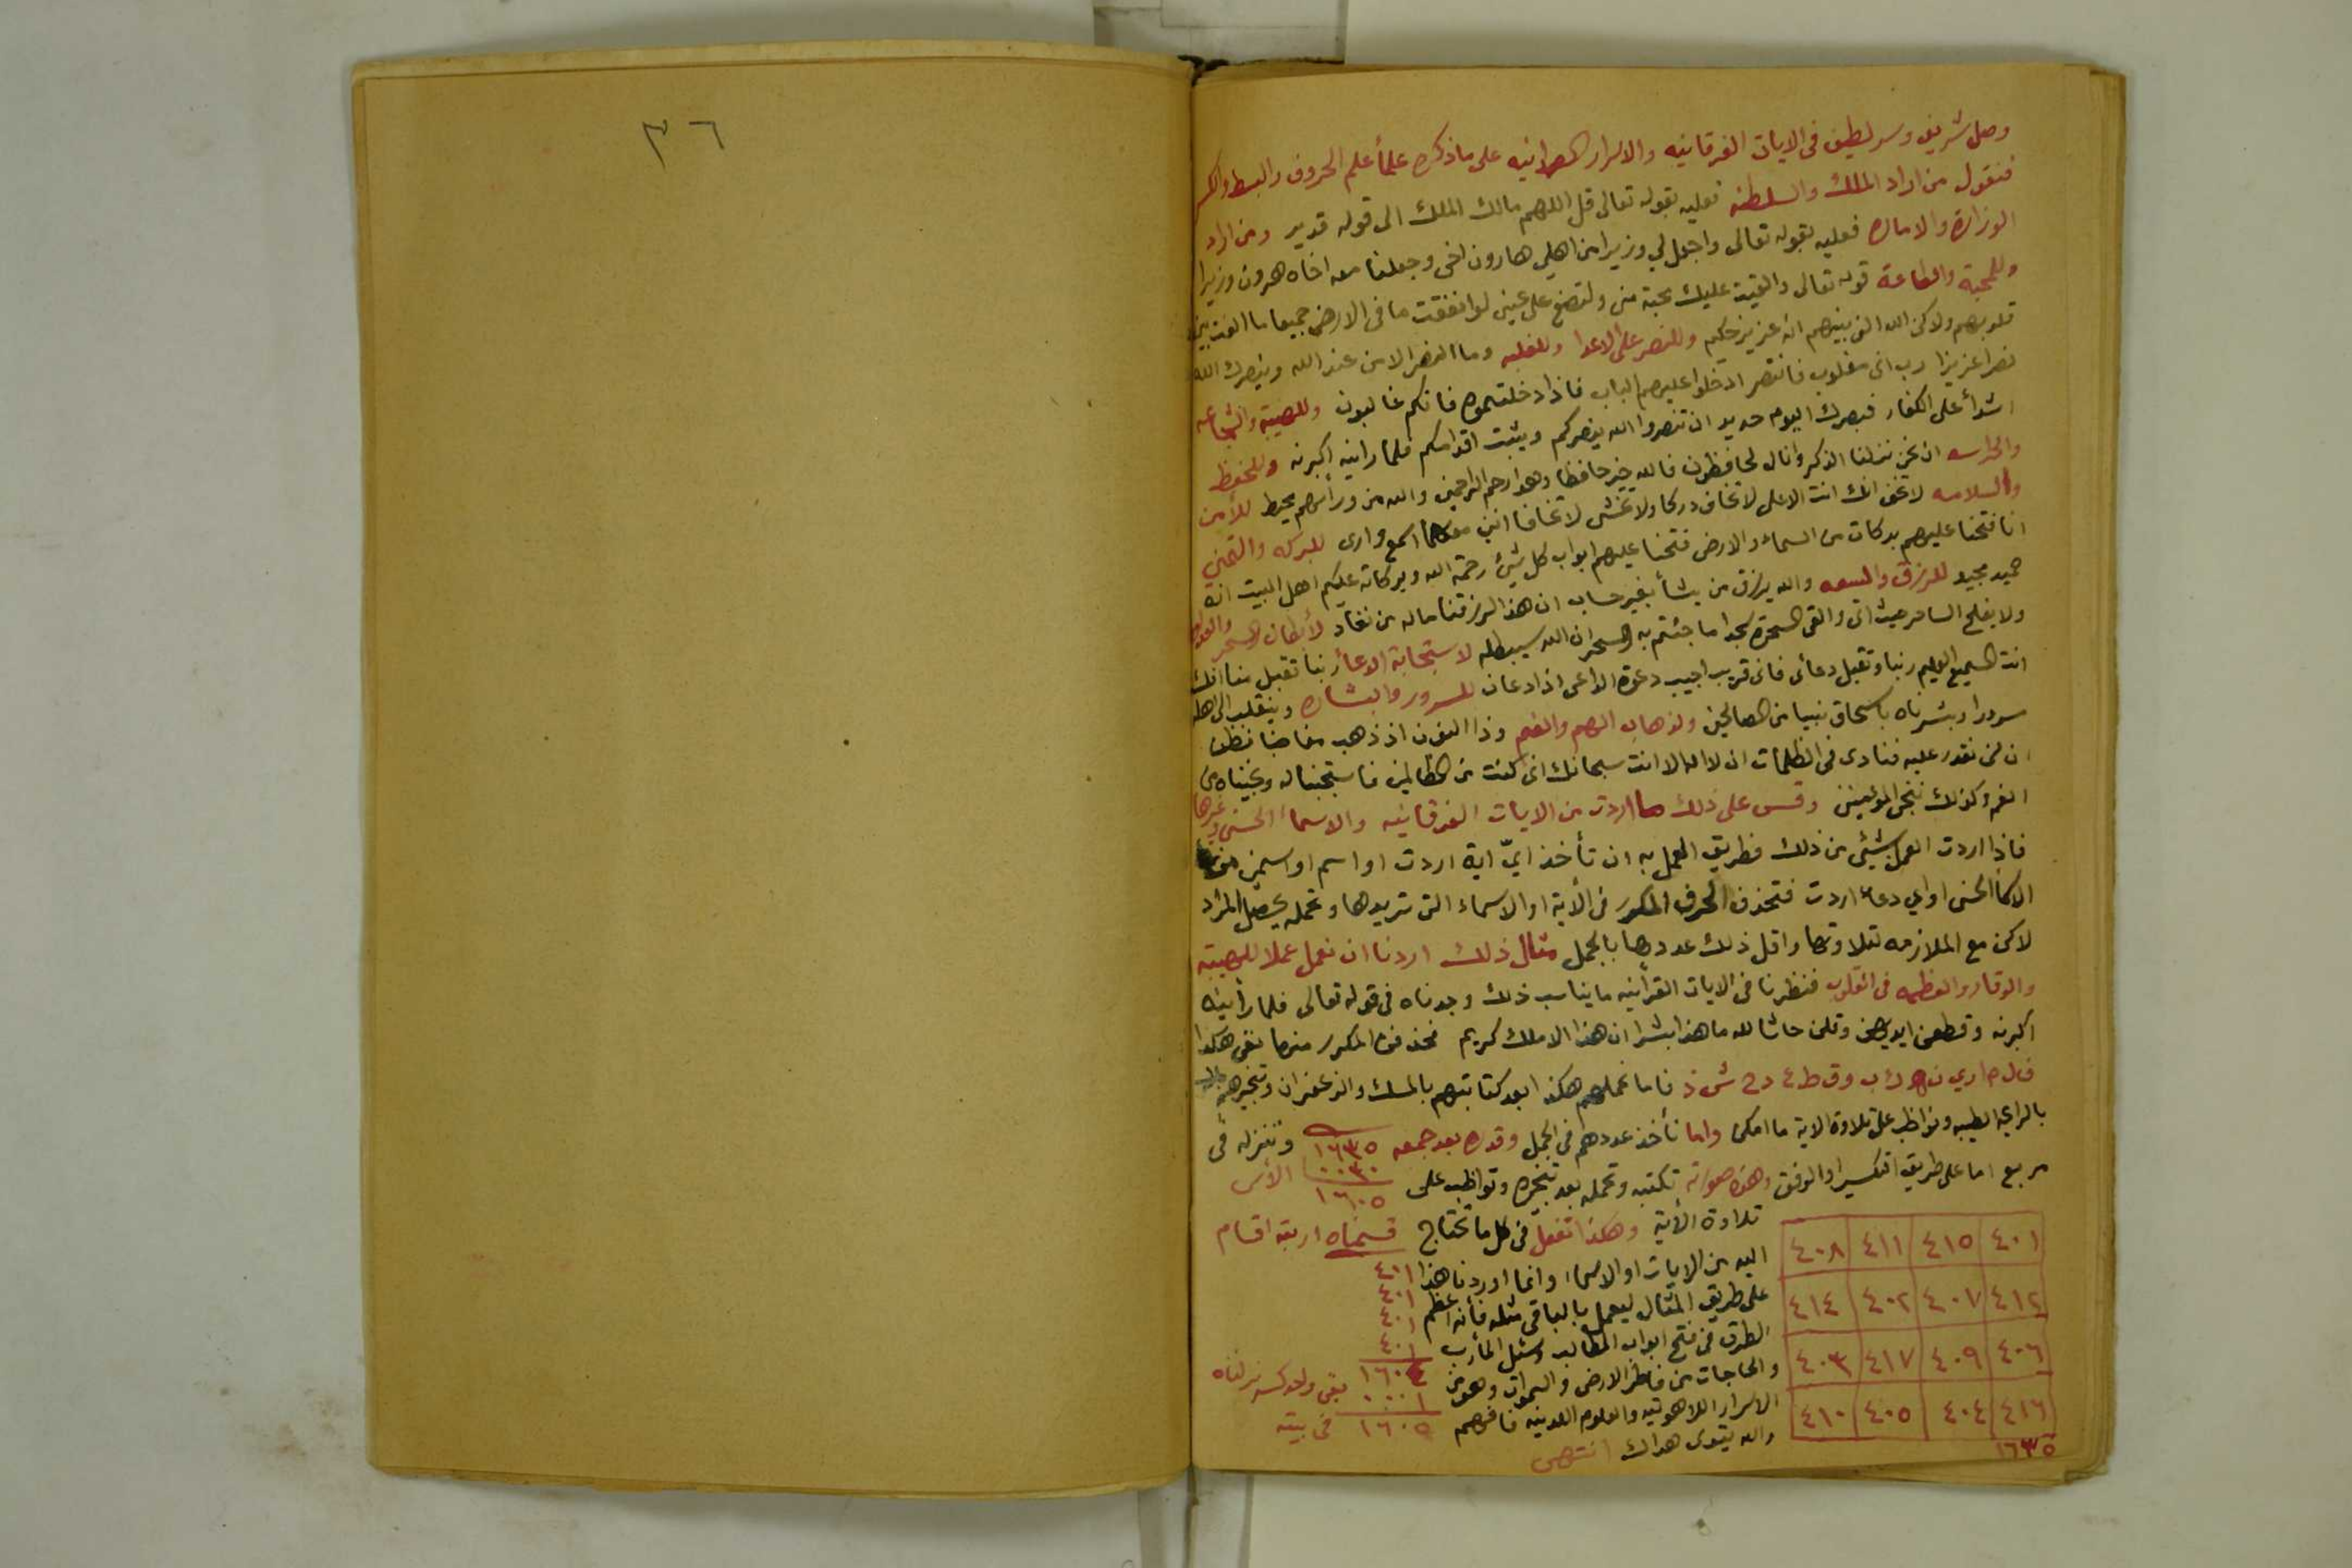 ٣٦
وصل شريف وسر لطيف فى الايات الفرقانيه والاسرار على ماذكره علمأ علم الحروف والبسط والكسر
فنقول من اراد الملك والسلطنه فعليه بقوله تعالى قل اللهم مالك الملك الى قوله قدير ومن اراد
الوزارة والاماره فعليه بقوله تعالى واجعل لي وزيرا من اهلي هارون اخى وجعلنا معه اخاه هرون وزيرا
وللمحبة والطاعة قوله تعالى والقيت عليك محبة منى ولتصنع على عينى لو انفقت ما فى الارض جميعا ما الفت بين
قلوبهم ولاكن الله الف بينهم انه عزيز حكيم وللنصر على الاعدا وللغلبه وما النصر الا من عند الله وينصرك الله
نصرا عزيزا رب انى مغلوب فانتصر ادخلوا عليهم الباب فاذا دخلتموه فانكم غالبون وللهيبة والشجاعه
اشدأ على الكفار فبصرك اليوم حديد ان تنصروا الله ينصركم ويثبت اقدامكم فلما راينه اكبرنه وللحفظ
والحراسه ان نحن نزلنا الذكر وانا له لحافظون فالله خير حافظا وهو ارحم الراحمين والله من ورأهم محيط للأمن
والسلامه لا تخف انك انت الاعلى لا تخاف دركا ولا تخشى لا تخافا اننى معكما اسمع وارى للبركه والتمنى
انا فتحنا عليهم بركات من السماء والارض فتحنا عليهم ابواب كل شيئ رحمة الله وبركاته عليكم اهل البيت انه
حميد مجيد للرزق والسعه والله يرزق من يشأ بغير حساب ان هذا لرزقنا ماله من نفاد لأبطال السحر
ولا يفلح الساحر حيث اتى والقى السحرة سجدا ما جئتم به السحر ان الله سيبطله لاستجابة الدعأ ربنا تقبل منا انك
انت السميع العليم ربنا وتقبل دعائى فانى قريب اجيب دعوة الداعى اذا دعان للسرور والبشاره وينقلب الى اهله
سرورا وبشرناه باسحاق نبيا من الصالحين ولذهاب الهم والغم وذا النون اذ ذهب مغاضبا فظن
ان لن نقدر عليه فنادى فى الظلمات ان لا اله الا انت سبحانك انى كنت من الظالمين فاستجبنا له ونجيناه من
الغم وكذلك ننجى المؤمنين وقس على ذلك ما اردت من الايات الفرقانيه والاسماء الحسنى وغيرها
فاذا اردت العمل بشيئى من ذلك فطريق العمل به ان تأخذ ايّ اية اردت او اسم او اسمين من
الاسماء الحسنى او اي دعاء اردت فتحذف الحرف المكرر فى الأية او الاسماء التى تريدها وتحمله يحصل المراد
لاكن مع الملازمه لتلاوتها واقل ذلك عددها بالجمل مثال ذلك اردنا ان نعمل عملا للهيبة
والوقار والعظمه فى القلوب فنظرنا فى الايات القرأنيه ما يناسب ذلك وجدناه فى قوله تعالى فلما رأينه
اكبرنه وقطعن ايديهن وقلن حاشا لله ما هذا بشرا ان هذا الا ملك كريم فحذفنا المكرر منها بقى هكذا
ف ل م ا ر ي ن ه ك ب و ق ط ع د ح ش ذ فاما تحملهم هكذا بعد كتابتهم بالمسك والزعفران وتبخيرهم
بالرايحة الطيبه وتواظب على تلاوة الاية ما امكن واما تأخذ عددهم فى الجمل وقدره بعد جمعه ١٦٣٥ وتنزله فى
مربع اما على طريق التكسير او الوفق وهذه صورته تكتبه وتحمله بعد تبخيره وتواظب على ٠٠٣٠ الأس
١٦٠٥
تلاوة الأية وهكذا تفعل فى كل ما تحتاج قسمناه اربعة اقسام
اليه من الايات او الاسماء وانما اوردنا هذا ٤٠١
على طريق المثال ليعمل بالباقى مثله فأنه اعظم ٤٠١
الطرق فى فتح ابواب المطالب وسئل المأرب ٤٠١
٤٠١
والحاجات من فاطر الارض والسموات وهو من ١٦٠٤ بقى واحد كسر نزلناه
الاسرار اللاهوتيه والعلوم اللدنيه فافهم ٠٠٠١
١٦٠٥ فى بيته
والله يتولى هداك انتهى
٤٠٨ ٤١١ ٤١٥ ٤٠١
٤١٤ ٤٠٢ ٤٠٧ ٤١٢
٤٠٣ ٤١٧ ٤٠٩ ٤٠٦
٤١٠ ٤٠٥ ٤٠٤ ٤١٦
١٦٣٥